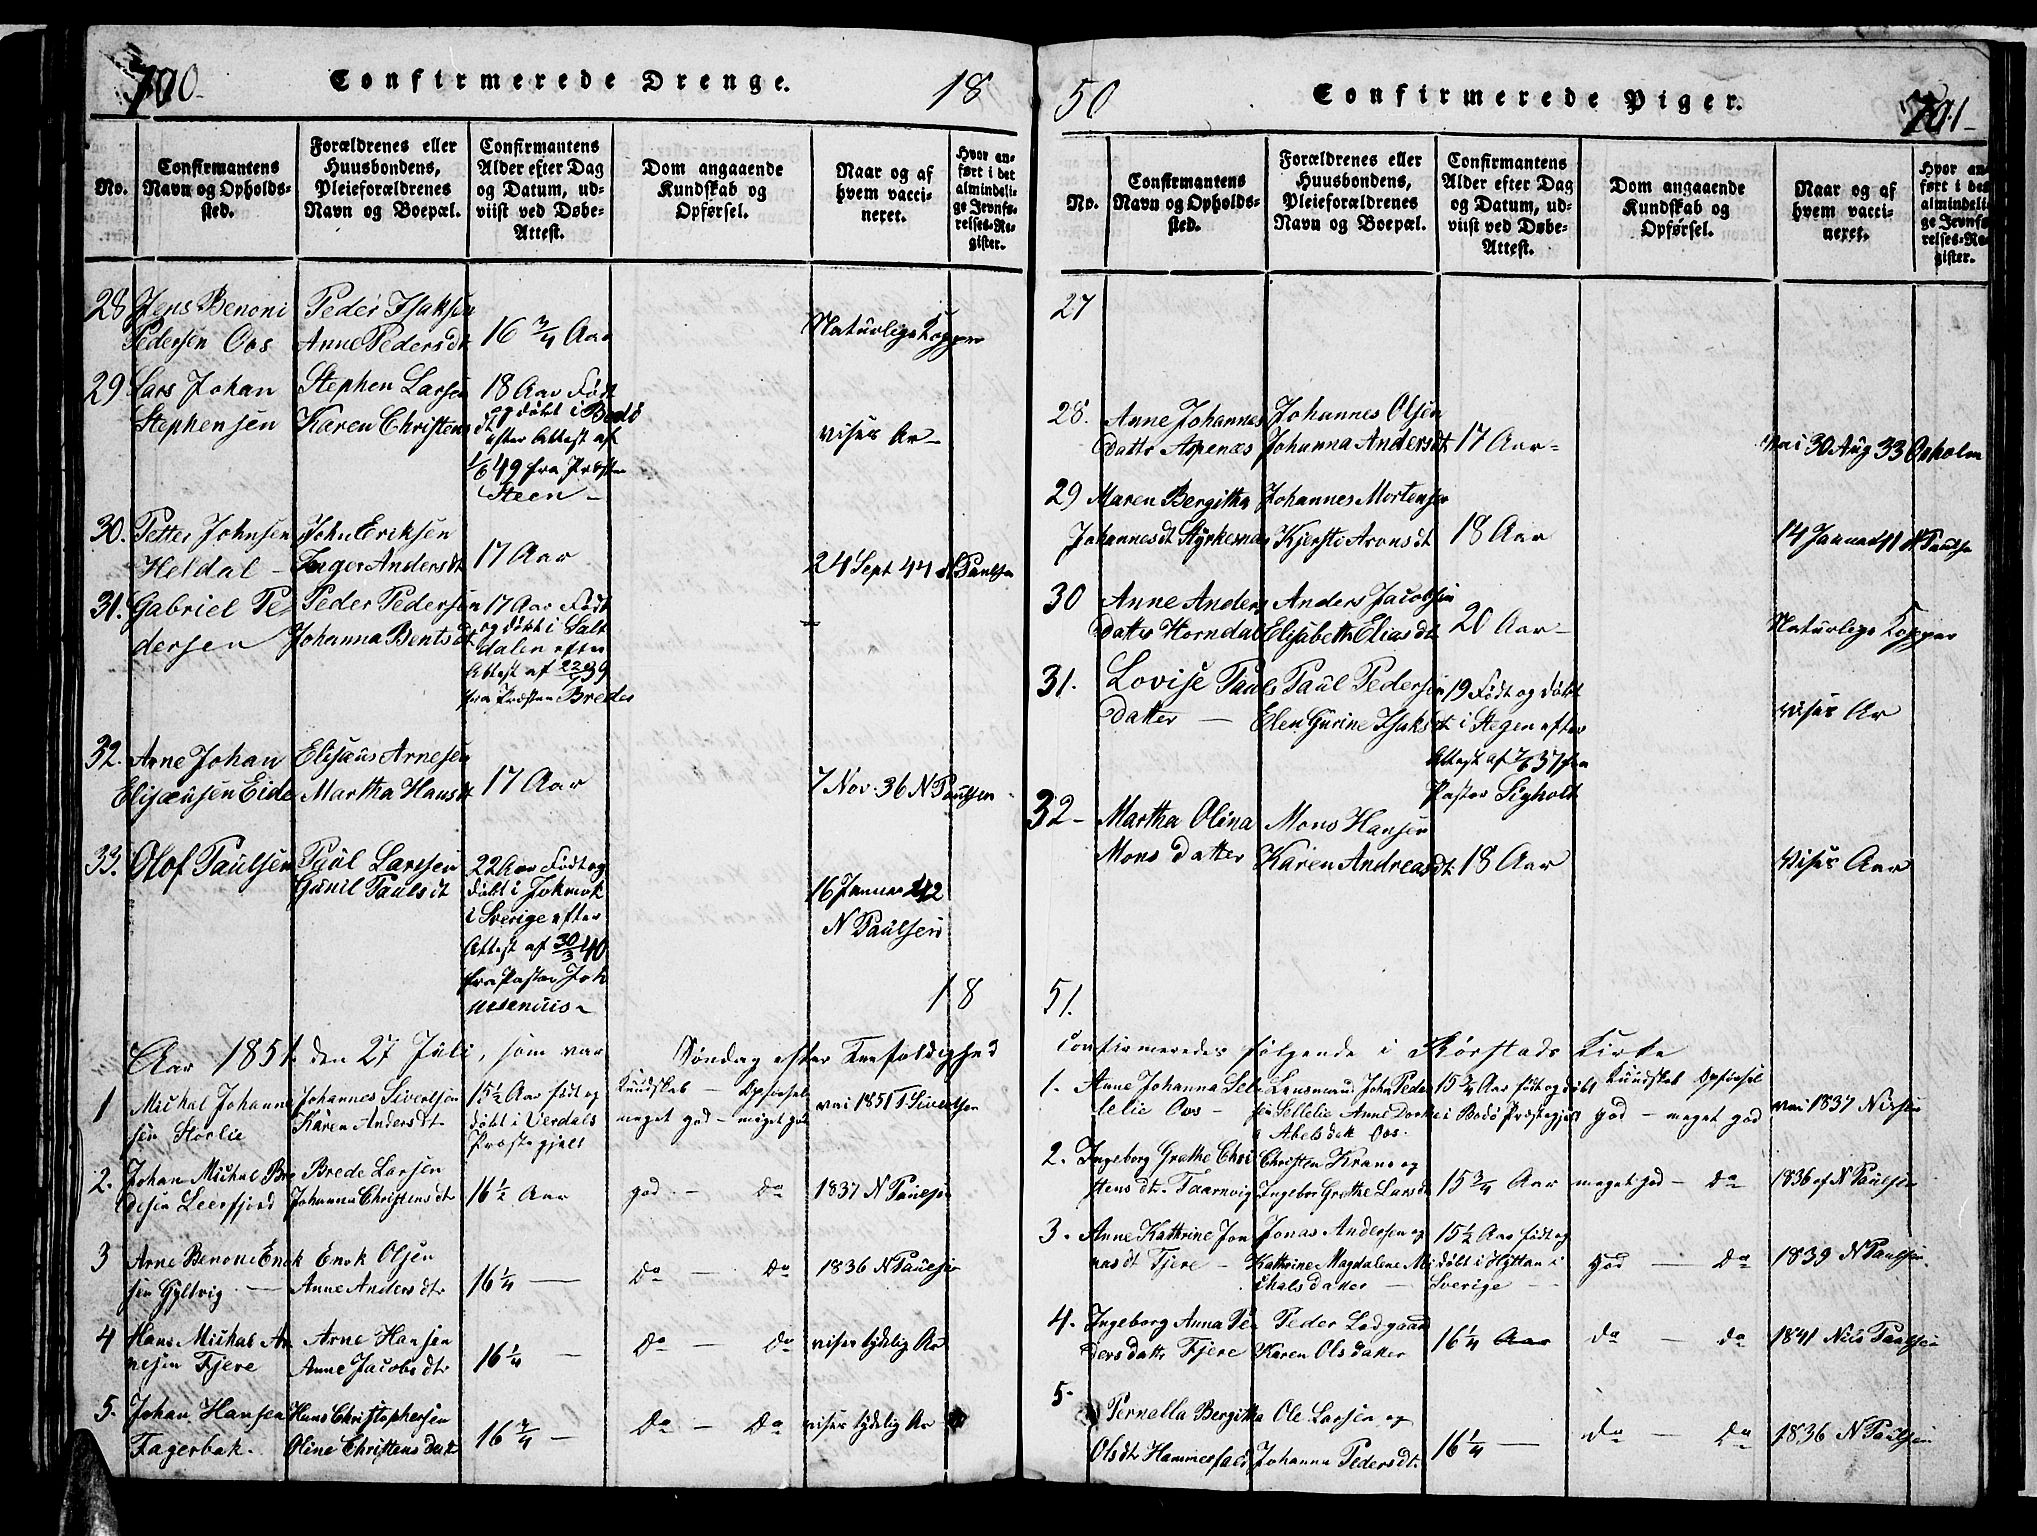 Confirmerede Drenge.
18
No.
Confirmantens
Navn og Opholds-
sted.
Forældrenes eller
Huusbondens,
Pleieforældrenes
Navn og Boepæl.
Confirmantens
Alder efter Dag
og Datum, ud-
viist ved Døbe-
Attest.
Dom angaaende
Kundskab og
Opførsel.
Naar og af
hvem vacci-
neret.
Hvor an-
ført i det
almindeli-
ge Jevnfø-
relses-Re-
gister.
28 Jens Benoni
Pedersen Oos
Peder Isaksen
Anne Pedersdt
16 3/4 Aar
Naturlige Kopper
29 Lars Johan
Stephensen
Stephen Larsen
Karen Christens
dt
18 Aar Født
og døbt i Bodø
efter Attest af
1/6 49 fra Præsten
Steen -
viser Ar -
30. Petter Johnsen
Heldal -
John Eriksen
Inger Andersdt
17 Aar
24 Sept 44 N Paulsen
31. Gabriel Pe
dersen
Peder Pedersen
Johanna Bentsdt
17 Aar Født
og døbt i Salt
dalen efter
Attest af 22/9 39
fra Præsten Breder
32. Arne Johan
Elisæusen Eide
Elisæus Arnesen
Martha Hansdt
17 Aar
7 Nov. 36 N Paulsen
33. Olof Paulsen
Paul Larssen
Gunil Paulsdt
22 Aar Født og
døbt i Jokmok
i Sverige efter
Attest af 30/3 40
fra Pastor
16 Januar 42
N Paulsen
18
Aar 1851 den 27 Juli, som var Søndag efter Trefoldighed
1 Michal Johanne
sen Storlie
Johannes Sivertsen
Karen Andersdt
15 1/2 Aar født og
døbt i Verdals
Præstegjelt
Kundskab - Opførsel
meget god - meget god
vac 1851 T Sivertsen
2. Johan Michal Bre
desen Leerfjord
Brede Larsen
Johanna Christensdtr
16 1/2 Aar
god - do
1837 N Paulsen
3 Arne Benoni Enok
sen Gyltvig -
Enok Olsen
Anne Andersdtr
16 1/4 -
do - do
1836 N Paulsen
4 Hans Michal Ar
nesen Fjere
Arne Hansen
Anne Jacobsdtr
16 1/4 -
do - do
viser tydelig Ar
5. Johan Hansen
Fagerbak.
Hans Christophersen
Oline Christens datr
16 3/4 -
do - do
viser tydelig Ar
50
Confirmerede Piger.
No.
Confirmantens
Navn og Opholds-
sted.
Forældrenes eller
Huusbondens,
Pleieforældrenes
Navn og Boepæl.
Confirmantens
Alder efter Dag
og Datum, ud-
viist ved Døbe-
Attest.
Dom angaaende
Kundskab og
Opførsel.
Naar og af
hvem vacci-
neret.
Hvor an-
ført i det
almindeli-
ge Jevnfø-
relses-Re-
gister.
27
28. Anne Johannes
Datter Aspenæs
Johannes Olsen
Johanna Andersdt
17 Aar -
30 Aug 33 Opholm
29 Maren Bergitha
Johannesdt Styrkesnæs
Johannes Mortensen
Kjersti Aronsdt
18 Aar
14 Januar 41 N Paulsen
30 Anne Anders
Datter Horndal
Anders Jacobsen
Elisabeth Eliasdt
20 Aar -
Naturlige Kopper
31. Lovise Pauls
Datter -
Paul Pedersen
Elen Gurine Isaksdt
19 Født og døbt
i Stegen efter
Attest af 7/6 37 fra
Pastor Sigholt
viser Ar
32 - Martha Olina
Mons Datter
Mons Hansen
Karen Andreasdt
18 Aar
viser Aar
51.
confirmeredes følgende i Rørstads Kirke
1. Anne Johanna Sel
lelie Oos -
Lensmand John Peder
sen Sellelie Anne Dorthe
Abelsdatr Oos.
15 3/4 Aar født og døbt
i Bodø Præstegjelt
Kundskab Opførsel
god - meget god
vac 1837 Nissen
2. Ingeborg Grethe Chri
stensdtr. Taarnvig
Christen Krane og
Ingebor Grethe Larsdtr
15 3/4 Aar
meget god - do
1836 af N Paulsen
3. Anne Kathrine Jon
nasdt Fjere -
Jonas Andersen og
Kathrine Magdalene Mi
chalsdatter
15 1/2 Aar født og
døbt i Hyttan i
Sverige -
god - do
1839 N Paulsen
4. Ingeborg Anna Pe
ders datr Fjere
Peder Lodgaard
Karen Olsdatter
16 1/4 Aar
do - do
1841 Nils Paulsen
5. Pernella Bergitha
Olsdtr Hammerfald
Ole Larsen og
Johanna Pedersdt.
16 1/4 -
do - do
1836 N Paulsen